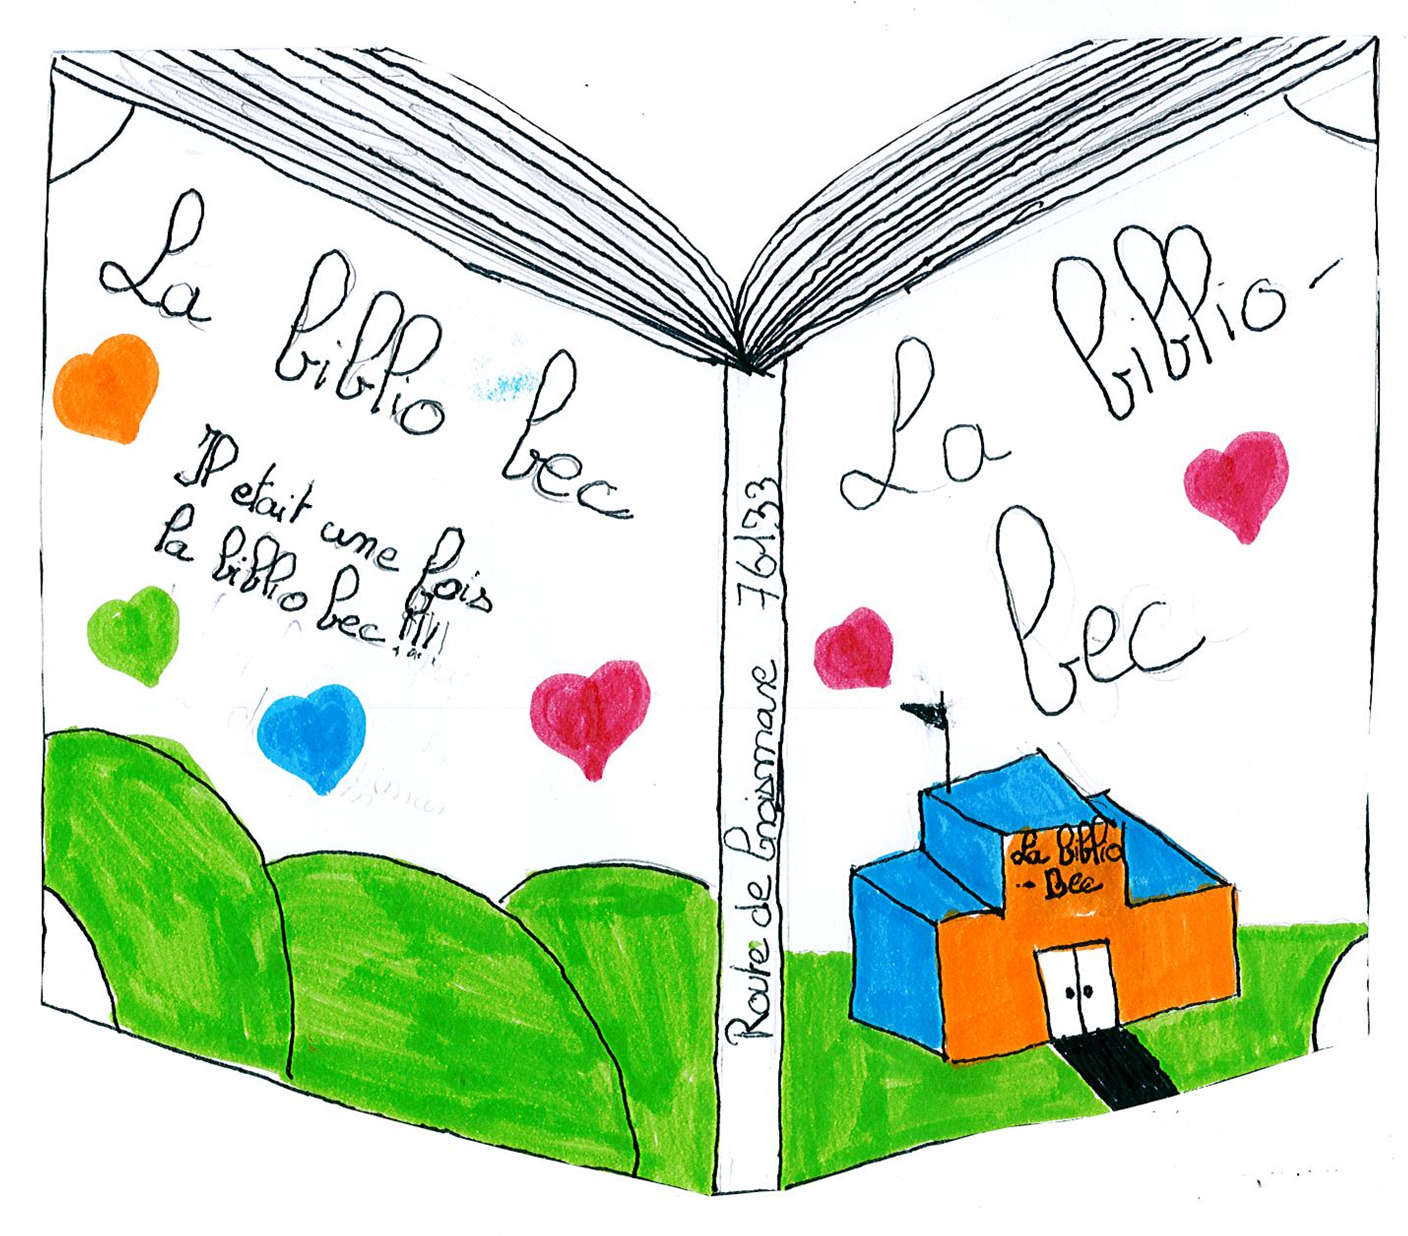 La biblio bec
Il etait une fois
la biblio bec !!!!
Route de 76133
La biblio-
bec
La biblio
- Bec